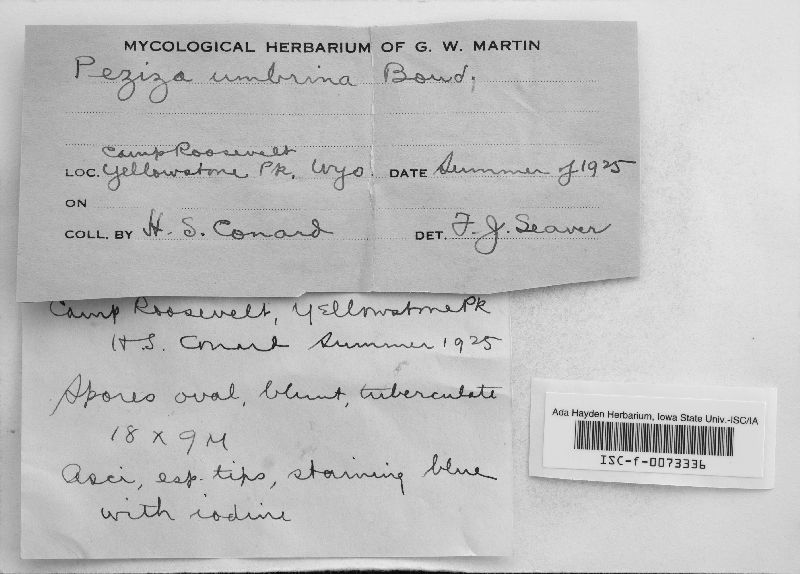 MYCOLOGICAL HERBARIUM OF G. W. MARTIN
Peziza umbrina Boud.
Camp Roosevelt
LOC. Yellowstone Pk, Wyo. DATE Summer of 1925
ON
COLL. BY H. S. Conard DET. F. J. Seaver
Camp Roosevelt, Yellowstone Pk
H.S. Conard Summer 1925
Spores oval, blunt, tuberculate
18 x 9 μ
Asci, esp. tips, staining blue
with iodine
Ada Hayden Herbarium, Iowa State Univ.-ISC/IA
ISC-f-0073336